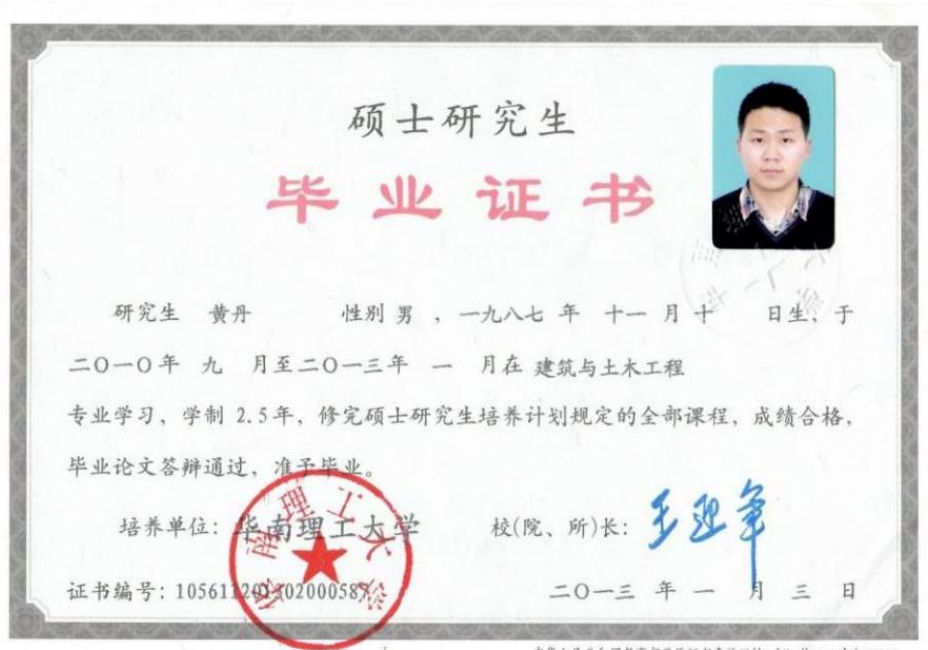 硕士研究生
毕业证书
研究生 黄丹 性别 男 ，一九八七 年 十一 月 十 日生，于
二〇一〇年 九 月至二〇一三年 一 月在 建筑与土木工程
专业学习，学制 2.5年，修完硕士研究生培养计划规定的全部课程，成绩合格，
毕业论文答辩通过，准予毕业。
培养单位：华南理工大学 校(院、所)长：
华南理工大学
证书编号：105611201302000587 二〇一三 年 一 月 三 日